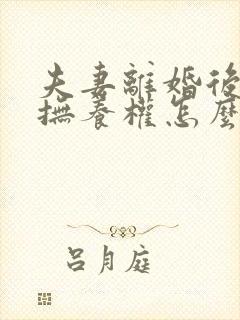 夫妻離婚後
撫養權怎麼
呂月庭